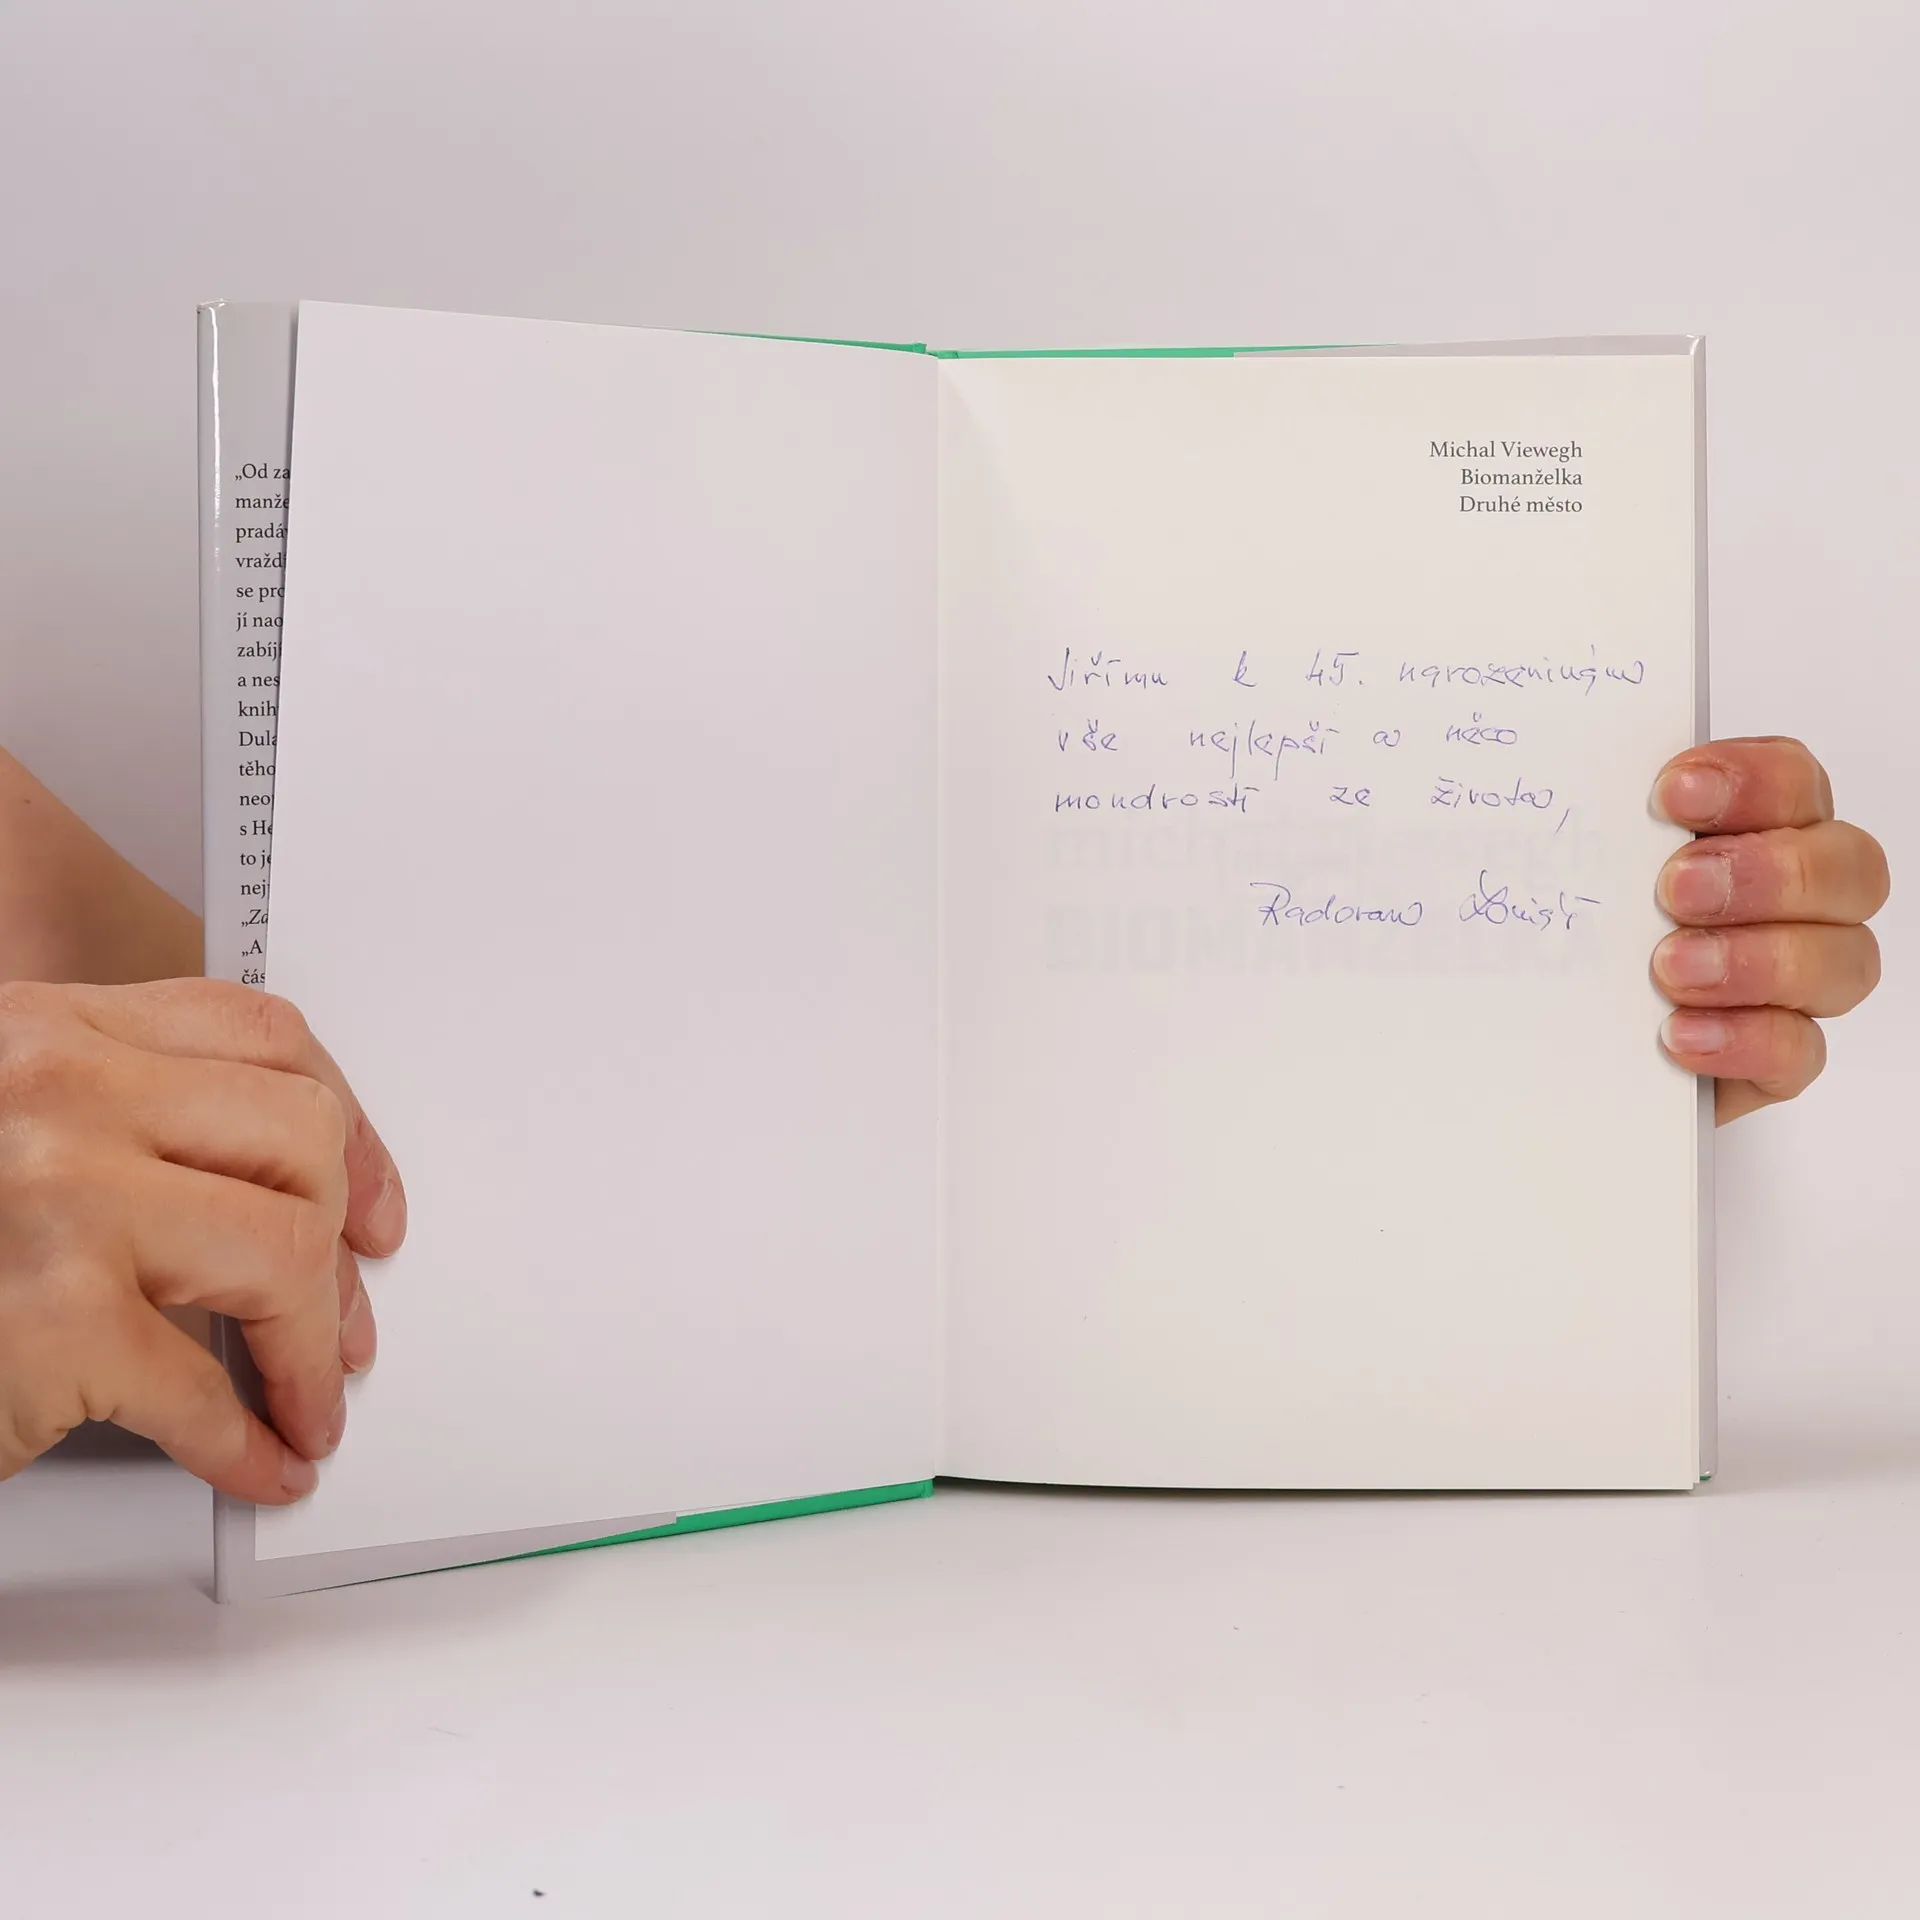 „Od za
manže
pradáv
vraždi
se pro
jí nao
zabíjí
a nes
knih
Dula
těho
neop
s He
to je
nejp
„Za
„A
čás
Michal Viewegh
Biomanželka
Druhé město
Jiřímu k 45. narozeninám
vše nejlepší a něco
moudrosti ze života,
Radovan